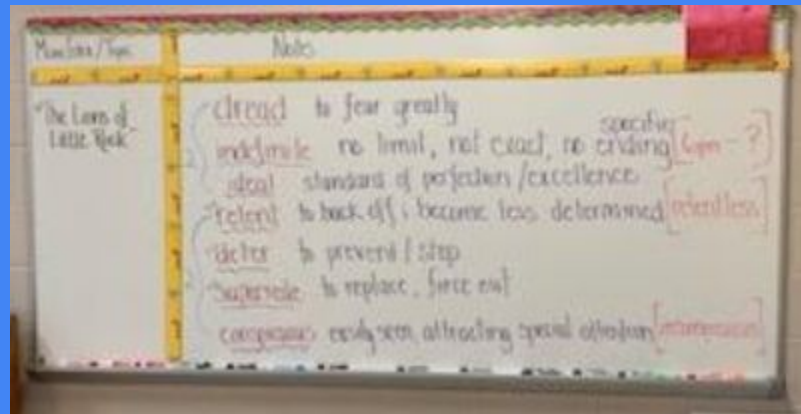 Main Idea/Topic
Notes
"The Lions of
Little Rock"
dread to fear greatly
specific
indefinite no limit, not exact, no ending [open - ?]
ideal standard of perfection/excellence
relent to back off; become less determined [relentless]
deter to prevent/stop
supersede to replace, force out
conspicuous easily seen, attracting special attention [inconspicuous]